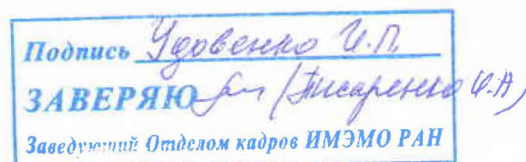 Подпись Удовенко И.П.
ЗАВЕРЯЮ (Писаренко И.А)
Заведующий Отделом кадров ИМЭМО РАН